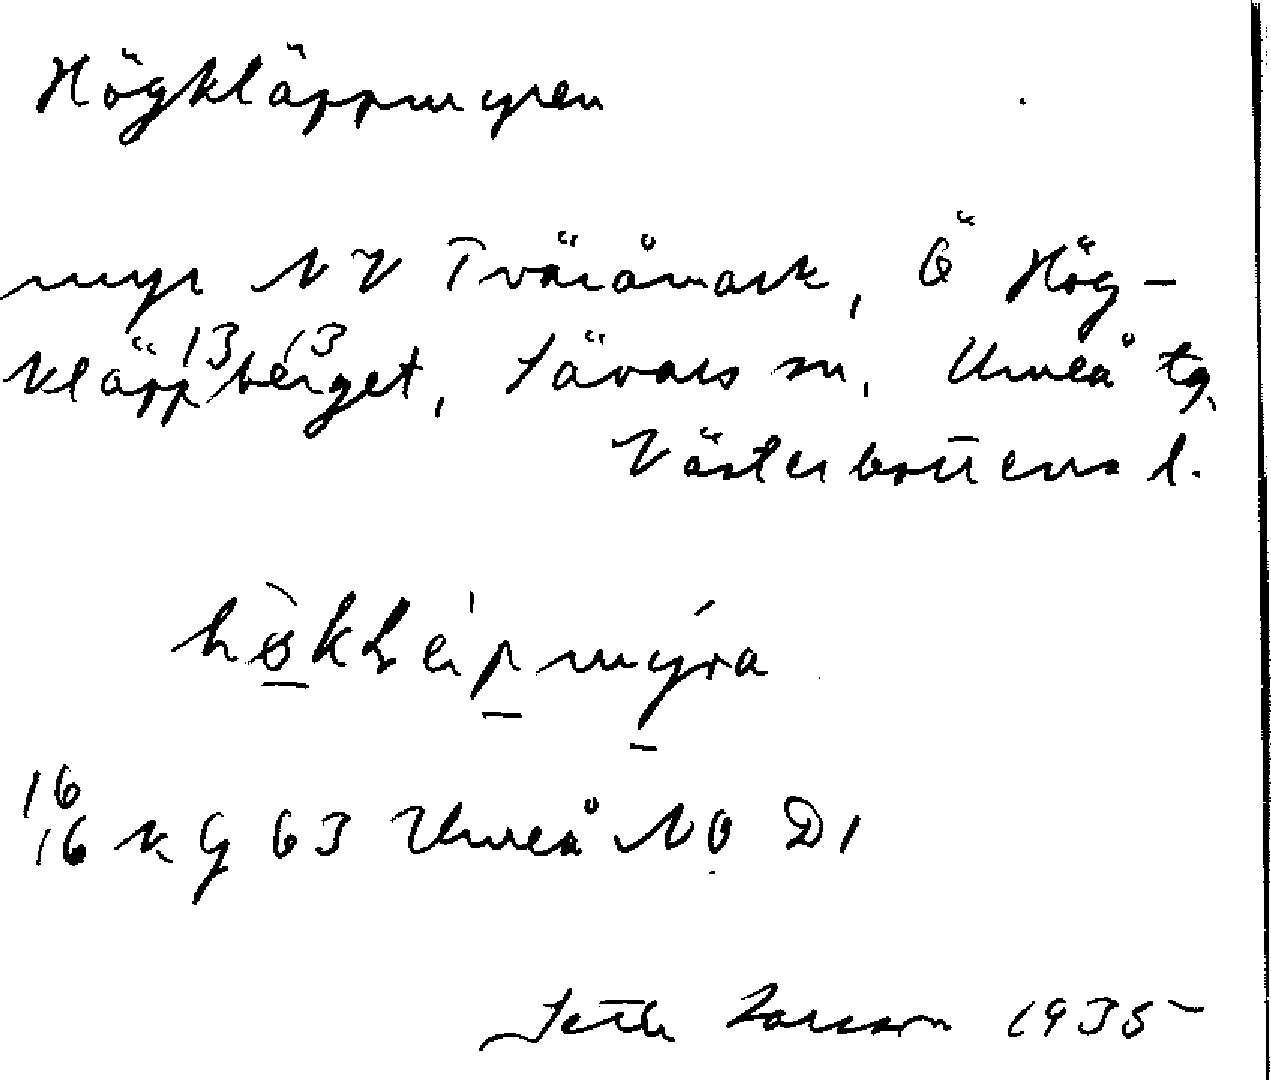 Högkläppmyren
myr NV Tväråmark, Ö Hög-
kläppberget, Sävars sn, Umeå tg.
13 13
Västerbottens l.
16
16 K G 63 Umeå NO D1
Seth Larsson 1935